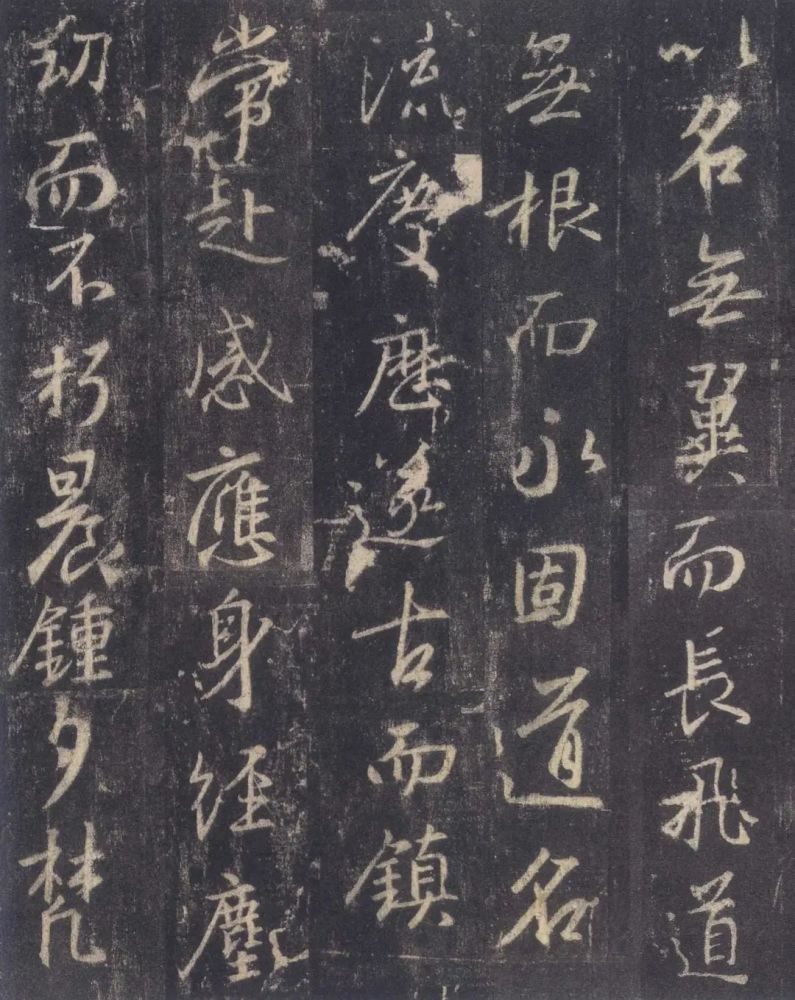 以名無翼而長飛道
無根而永固道名
流慶歷遂古而鎮
常赴感應身經塵
劫而不朽晨鍾夕梵